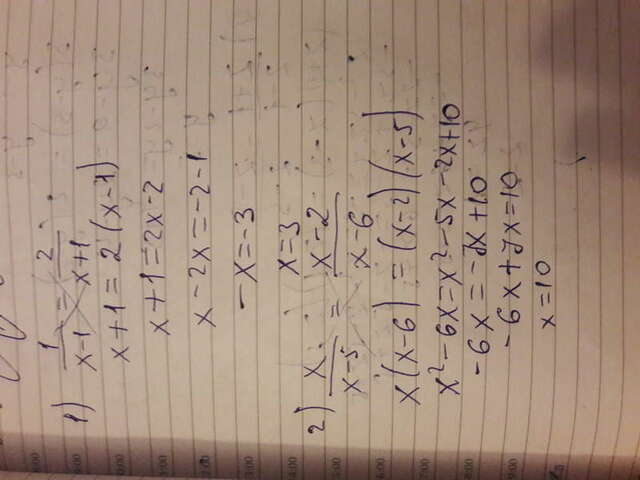 1) 1/(x-1) = 2/(x+1)
x+1=2(x-1)
x+1=2x-2
x-2x=-2-1
-x=-3
x=3
2) x/(x-5) = (x-2)/(x-6)
x(x-6)=(x-2)(x-5)
x²-6x=x²-5x-2x+10
-6x=-7x+10
-6x+7x=10
x=10